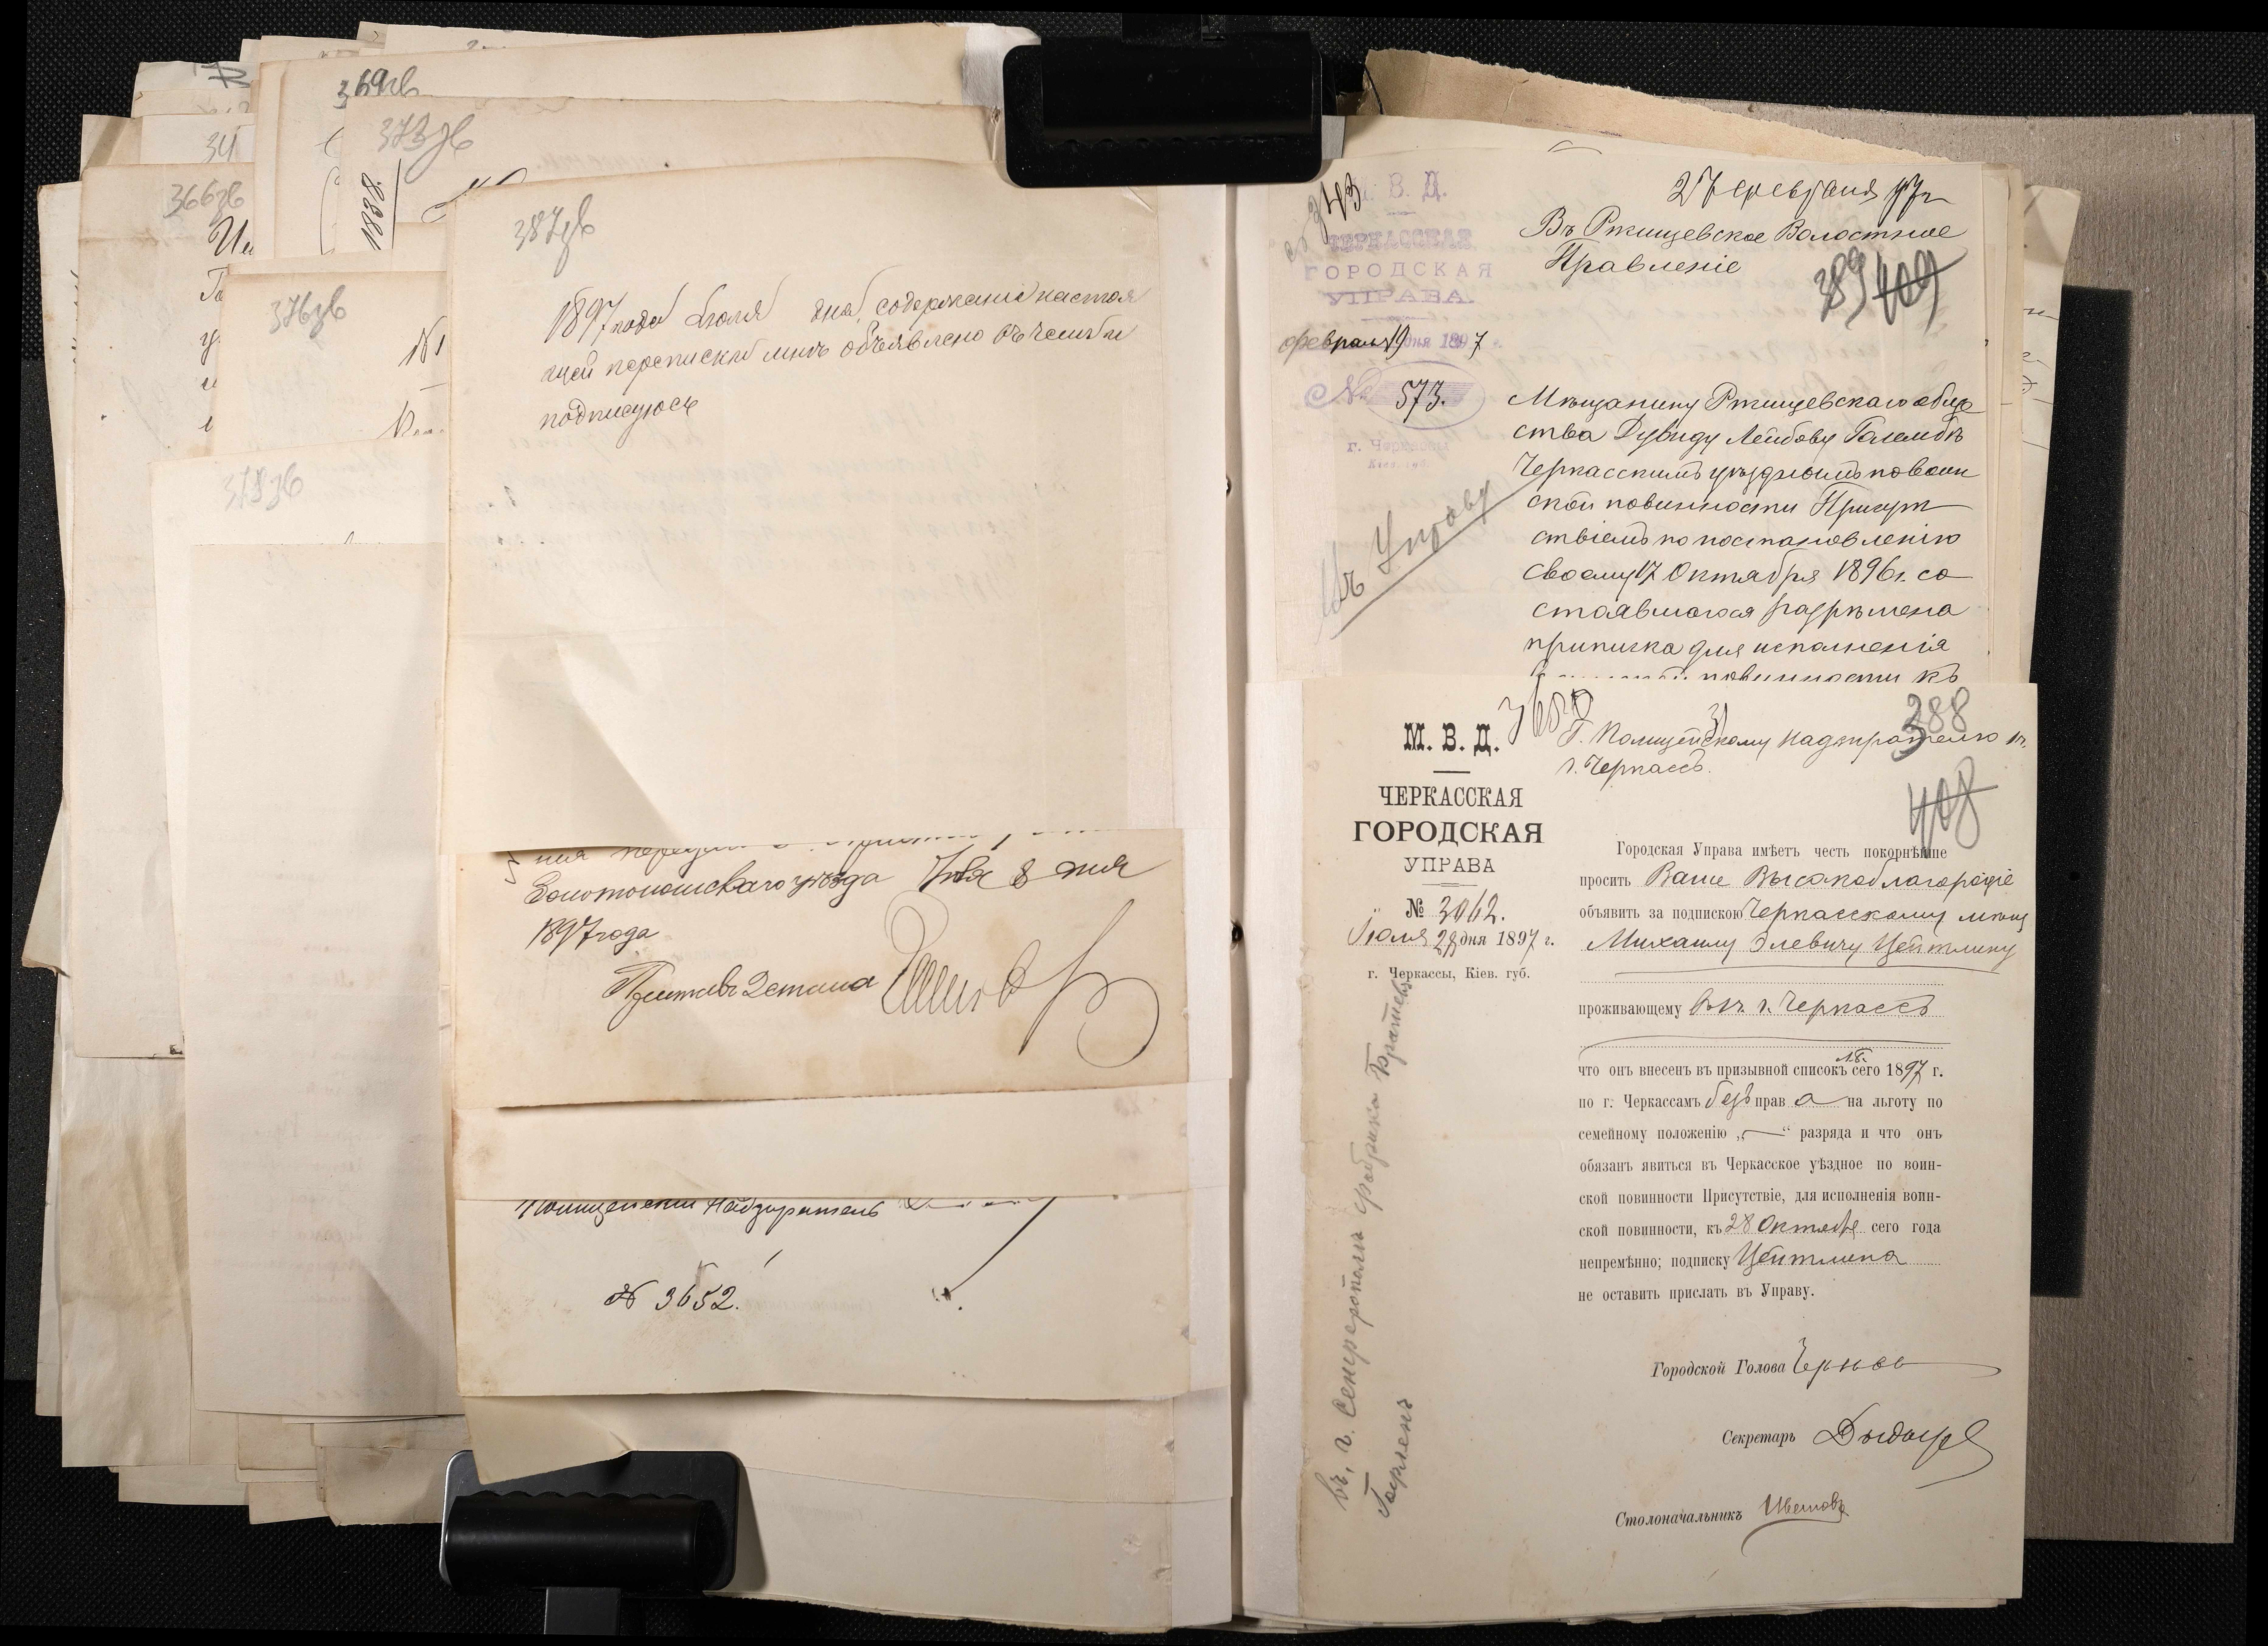 369зв
373зв
34
366зв
1838
376зв
378зв
387зв
1897 года Іюля дня, содержаніе настоя
щей переписки мнѣ объявлено въ чемъ и
подписуюсь
Золотоношскаго уѣзда Іюля 8 дня
1897 года
Приставъ 2 стана
Полицейскій Надзиратель
№ 3652.
М. В. Д.
ЧЕРКАССКАЯ
ГОРОДСКАЯ
УПРАВА.
февраля 19 дня 1897
№ 573.
г. Черкассы
Кіев. губ.
Въ Управу
27 февраля 97 г
Въ Ржищевское Волостное
Правленіе
389 409
Мѣщанину Ржищевскаго обще
ства Дувиду Лейбову Голембѣ
Черкасскимъ уѣзднымъ по воин
ской повинности Присут
ствіемъ по постановленію
своему 17 Октября 1896 г. со
стоявшагося разрѣшена
приписка для исполненія
повинности къ
М. В. Д.
ЧЕРКАССКАЯ
ГОРОДСКАЯ
УПРАВА
№ 3062.
Іюля 28 дня 1897 г.
г. Черкассы, Кіев. губ.
388
Г. Полицейскому Надзирателю въ
г. Черкассъ.
408
Городская Управа имѣетъ честь покорнѣйше
просить Ваше Высокоблагородіе
объявить за подпискою Черкасскому мѣщ
Михаилу Элевичу Цейтлину
проживающему въ г. Черкассъ
что онъ внесенъ въ призывной списокъ сего 1897 г.
по г. Черкассамъ безъ прав а на льготу по
семейному положенію „—“ разряда и что онъ
обязанъ явиться въ Черкасское уѣздное по воин-
ской повинности Присутствіе, для исполненія воин-
ской повинности, къ 28 Октября сего года
непремѣнно; подписку Цейтлина
не оставить прислать въ Управу.
Городской Голова
Секретарь
Столоначальникъ
въ г. Семферополь фабрика Братьевъ